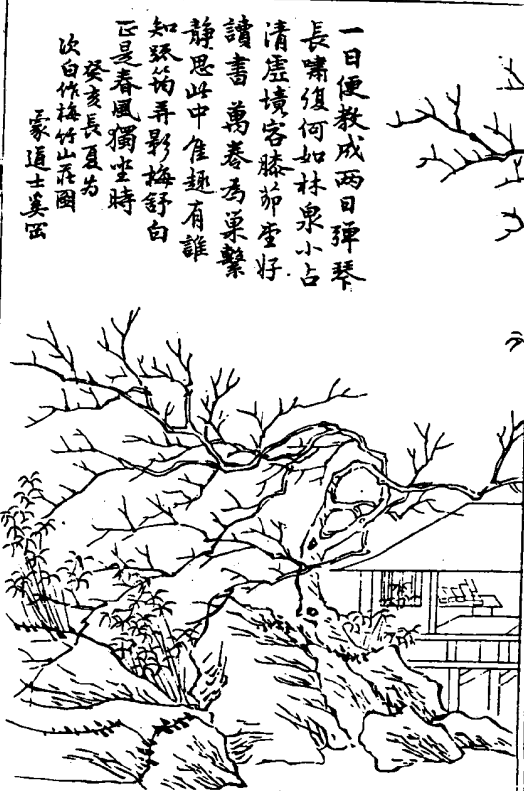 一日便教成兩日彈琴
長嘯復何如林泉小占
清虛境容膝茆堂好
讀書萬卷為巢繫
靜思此中佳趣有誰
知疏筠弄影梅舒白
正是春風獨坐時
癸亥長夏為
次白作梅竹山莊圖
蒙道士奚岡